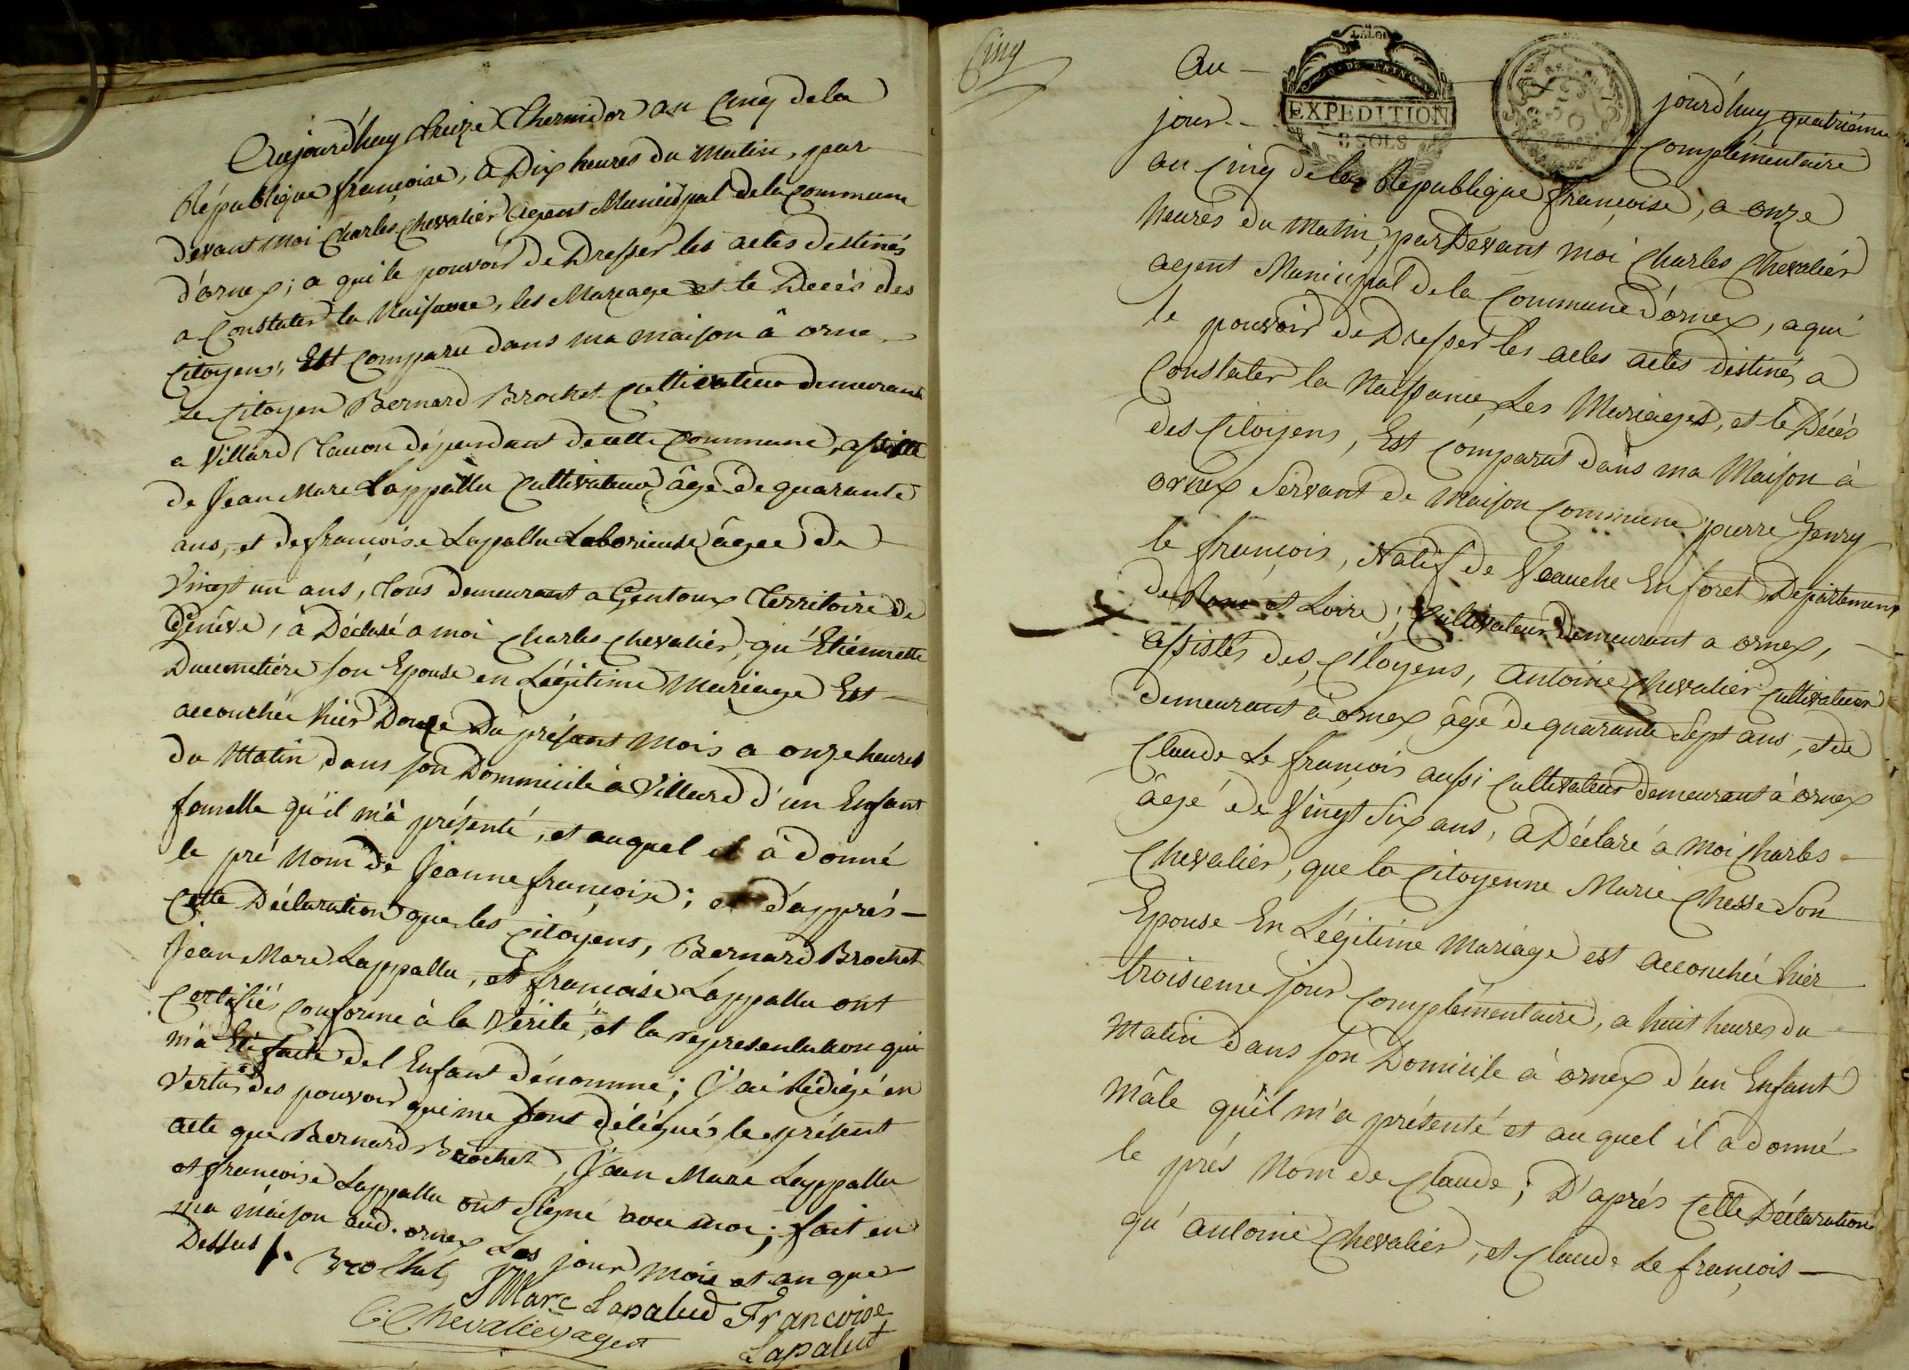 Aujourd'huy treize Thermidor an Cinq de la
République françoise, à Dix heures du Matin, par
devant moi Charles Chevalier agent Municipal de la Commune
d'ornex; a qui le pouvoir de Dresser les actes destinés
a Constater la Naissance, les Mariage et le Décés des
Citoyens, Est Comparu dans ma maison à orne
Le Citoyen Bernard Brochet Cultivateur demeurant
a Villard dépendant de cette Commune, assisté
de Jean Marc Lappallu Cultivateur âgé de quarante
ans, et de françoise Lapallu Laborieuse âgée de
Vingt un ans, tous demeurant a Gentoux Territoire de
Genéve, à Déclaré a moi Charles Chevalier, qu'Etiennette
Ducimetiére son Epouse en Légitime Mariage Est
accouchée hier Douze Du présant Mois a onze heures
du Matin dans son Dommicile à Villard d'un Enfant
femelle qu'il m'à présenté, et auquel il à donné
le pré Nom de Jeanne françoise; et d'apprés
Cette Déclaration que les Citoyens, Bernard Brochet
Jean Marc Lappallu, et françoise Lappallu ont
Certifiés Conforme à la Vérité, et la representation qui
m'a Eté faite de l Enfant dénommé; J'ai Rédigé en
Vertu des pouvoir qui me sont délégués le présent
acte que Bernard Brochet, Jean Marc Lappallu
et françoise Lappallu ont Signé avec moi; fait en
ma maison aud. ornex Les jour Mois et an que
Dessus
Brochet
J Marc Lapalud Françoise
C. Chevalier agent Lapalud
Cinq
LA LOI
EXPEDITION
8 SOLS
Au jourd'huy quatriéme
jour Complémentaire
an Cinq de la République françoise, a onze
heures du Matin, par Devant moi Charles Chevaliér
agent Municipal de la Commune d'ornex, a qui
le pouvoir de Dresser les actes actes destinés a
Constater la Naissance, Les Mariages, et le Décés
des Citoyens, Est Comparut dans ma Maison à
ornex Servant de Maison Commune pierre Genry
le françois, Natif de Veauche En foret Departement
de et Loire; Cultivateur Demeurant a ornex,
assistés des Citoyens, Antoine Chevalier Cultivateur
demeurant à ornex âgé de quarante Sept ans, et de
Claude Le françois aussi Cultivateur demeurant à ornex
âgé de Vingt Six ans, a Déclaré à moi Charles
Chevalier, que la Citoyenne Marie Chesse Son
Epouse En Légitime Mariage est accouchée hier
troisieme jour Complémentaire, a huit heures du
Matin dans son Domicile à ornex d'un Enfant
Mâle qu'il m'a présenté et au quel il a donné
le prés Nom de Claude; D'aprés Cette Déclaration
qu'antoine Chevalier, et Claude Le françois